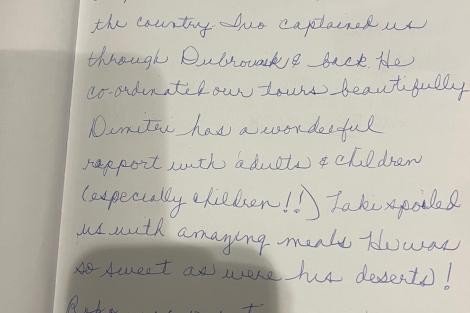 the country. Ivo captained us
through Dubrovnik & back. He
co-ordinated our tours beautifully
Dimitri has a wonderful
rapport with adults & children
(especially children!!) Laki spoiled
us with amazing meals He was
so sweet as were his deserts)!